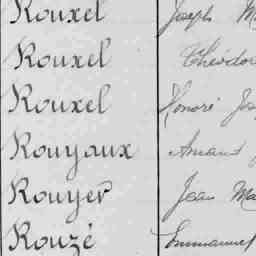 Rouxel Joseph
Rouxel Théodor
Rouxel Honoré
Rouyaux Amand
Rouyer Jean Ma
Rouzé Emmanuel